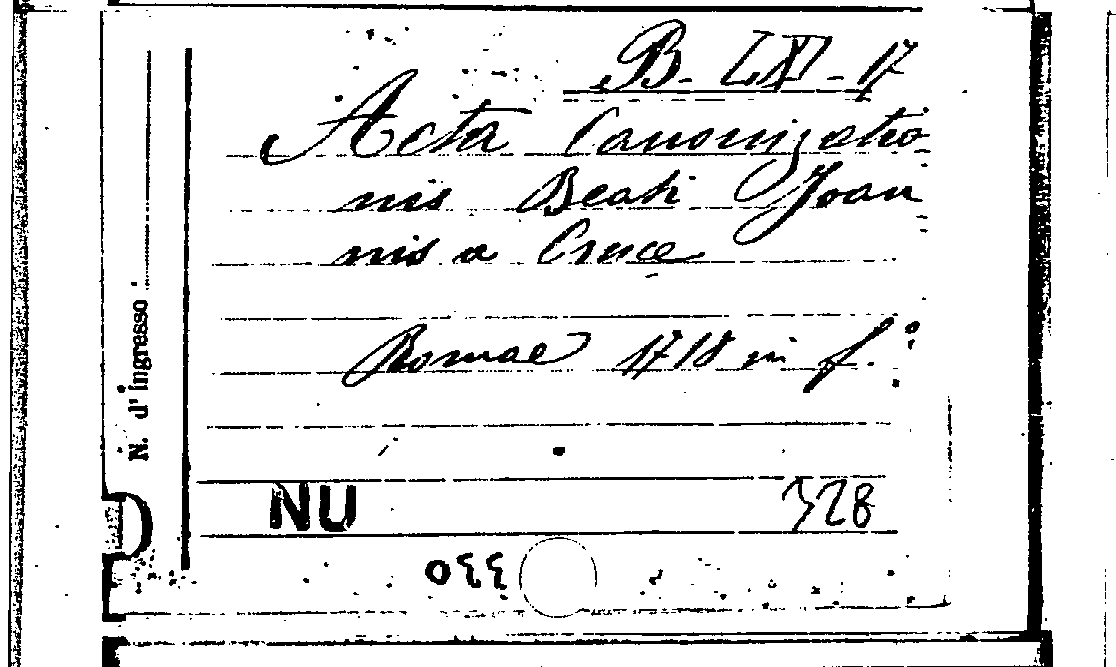 B. LXI - 17
Acta Canonizatio-
nis Beati Joan
nis a Cruce
Romae 1718 in f.º
N. d'ingresso
NU 328
033